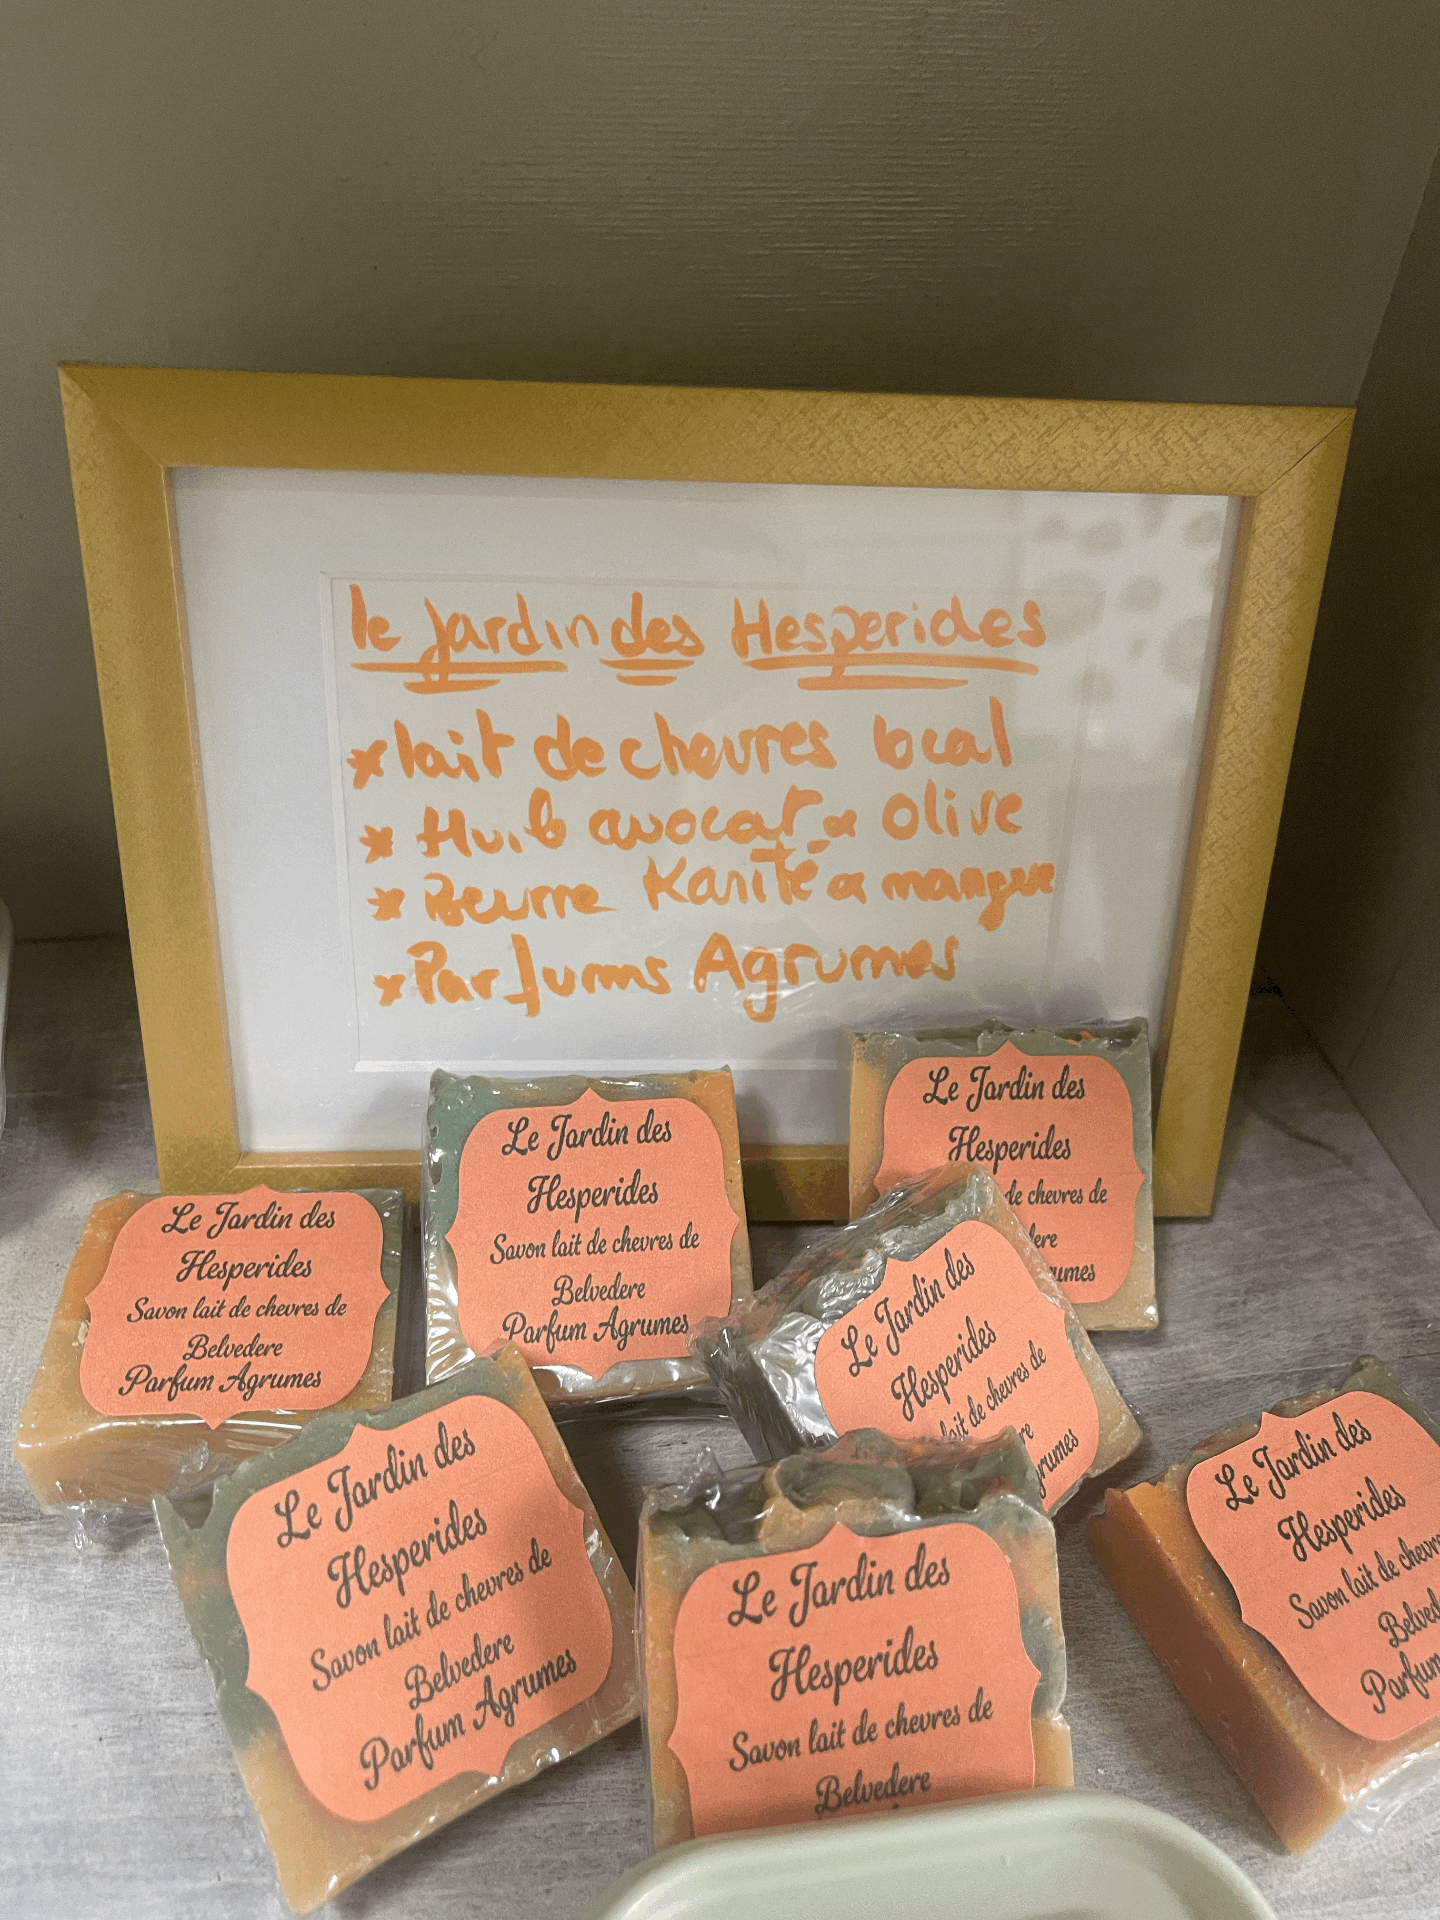 le Jardin des Hesperides
* lait de chevres local
* Huile avocat & Olive
* Beurre Karité & mangue
* Parfums Agrumes
Le Jardin des
Hesperides
Savon lait de chevres de
Belvedere
Parfum Agrumes
Le Jardin des
Hesperides
Savon lait de chevres de
Belvedere
Parfum Agrumes
Le Jardin des
Hesperides
de chevres de
Le Jardin des
Hesperides
lait de chevres de
Le Jardin des
Hesperides
Savon lait de chevres de
Belvedere
Parfum Agrumes
Le Jardin des
Hesperides
Savon lait de chevres de
Belvedere
Le Jardin des
Hesperides
Savon lait de